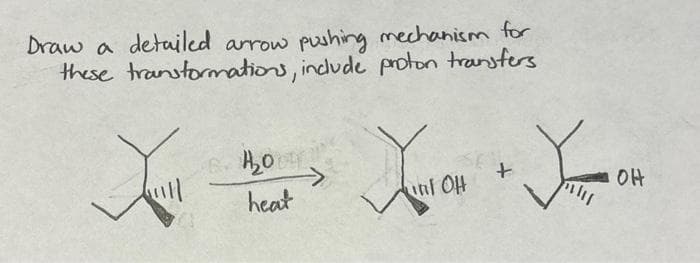 Draw a detailed arrow pushing mechanism for
these transformations, include proton transfers
H₂O
heat
OH
+
OH